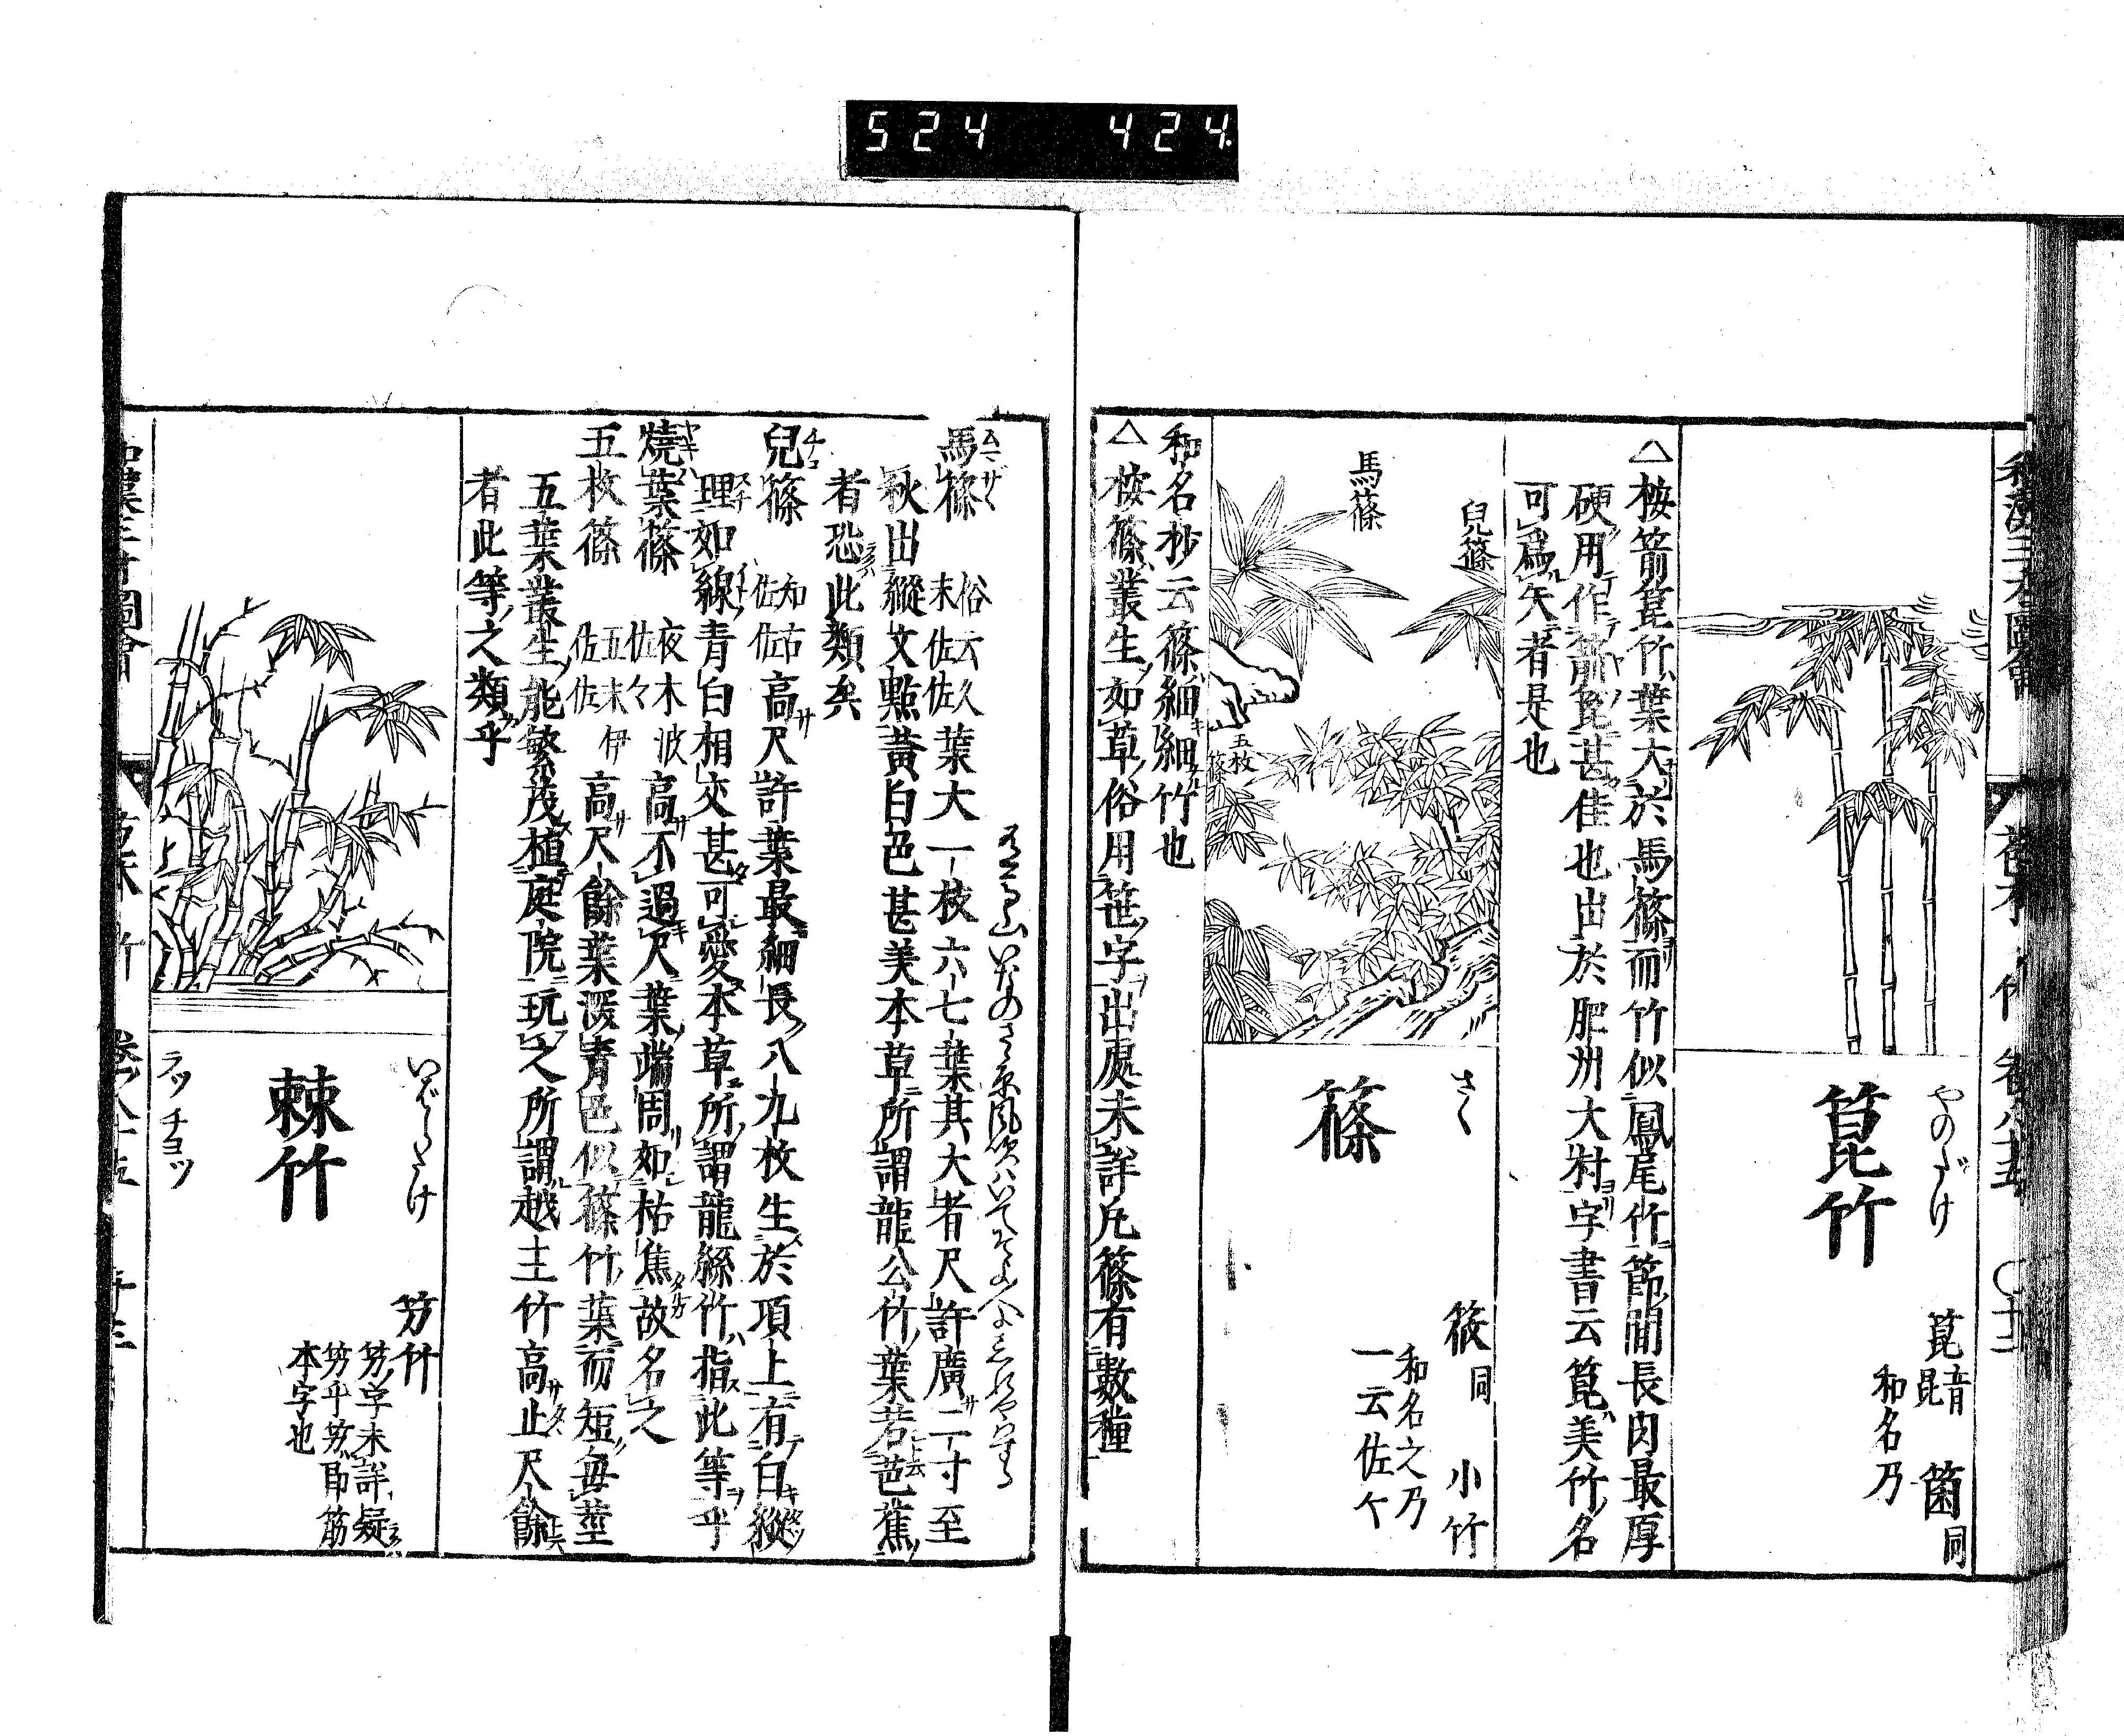 524 424.
和漢三才圖會 苞木 竹 卷八十五
やのだけ
箟竹
箟音昆 箘同
和名乃
△按箭箟竹葉大於馬篠而竹似鳳尾竹節間長肉最厚
硬用作箭箟甚佳也出於肥州大村字書云箟美竹名
可爲矢者是也
兒篠
馬篠
五枚篠
さゝ
篠
筱同 小竹
和名之乃
一云佐々
和名抄云篠細細竹也
△按篠叢生如草俗用笹字出處未詳凡篠有數種
馬篠 俗云久末佐佐 葉大一枝六七葉其大者尺許廣二寸至
秋出縱文㸃黃白色甚美本草所謂龍公竹葉若芭蕉
者恐此類矣
兒篠 知古佐佐 高尺許葉最細長八九枚生於項上有白縱
理如線青白相交甚可愛本草所謂龍絲竹指此等乎
燒葉篠 夜木波佐々 高不過尺葉端周如枯焦故名之
五枚篠 五末伊佐佐 高尺餘葉深青色似篠竹葉而短每莖
五葉叢生能繁茂植庭院玩之所謂越王竹高止尺餘
者此等之類乎
いばらたけ
棘竹
ラッ チヨッ
竻竹
竻字未詳疑
竻乎竻卽筋
本字也
和漢三才圖會 苞木 竹 卷八十五